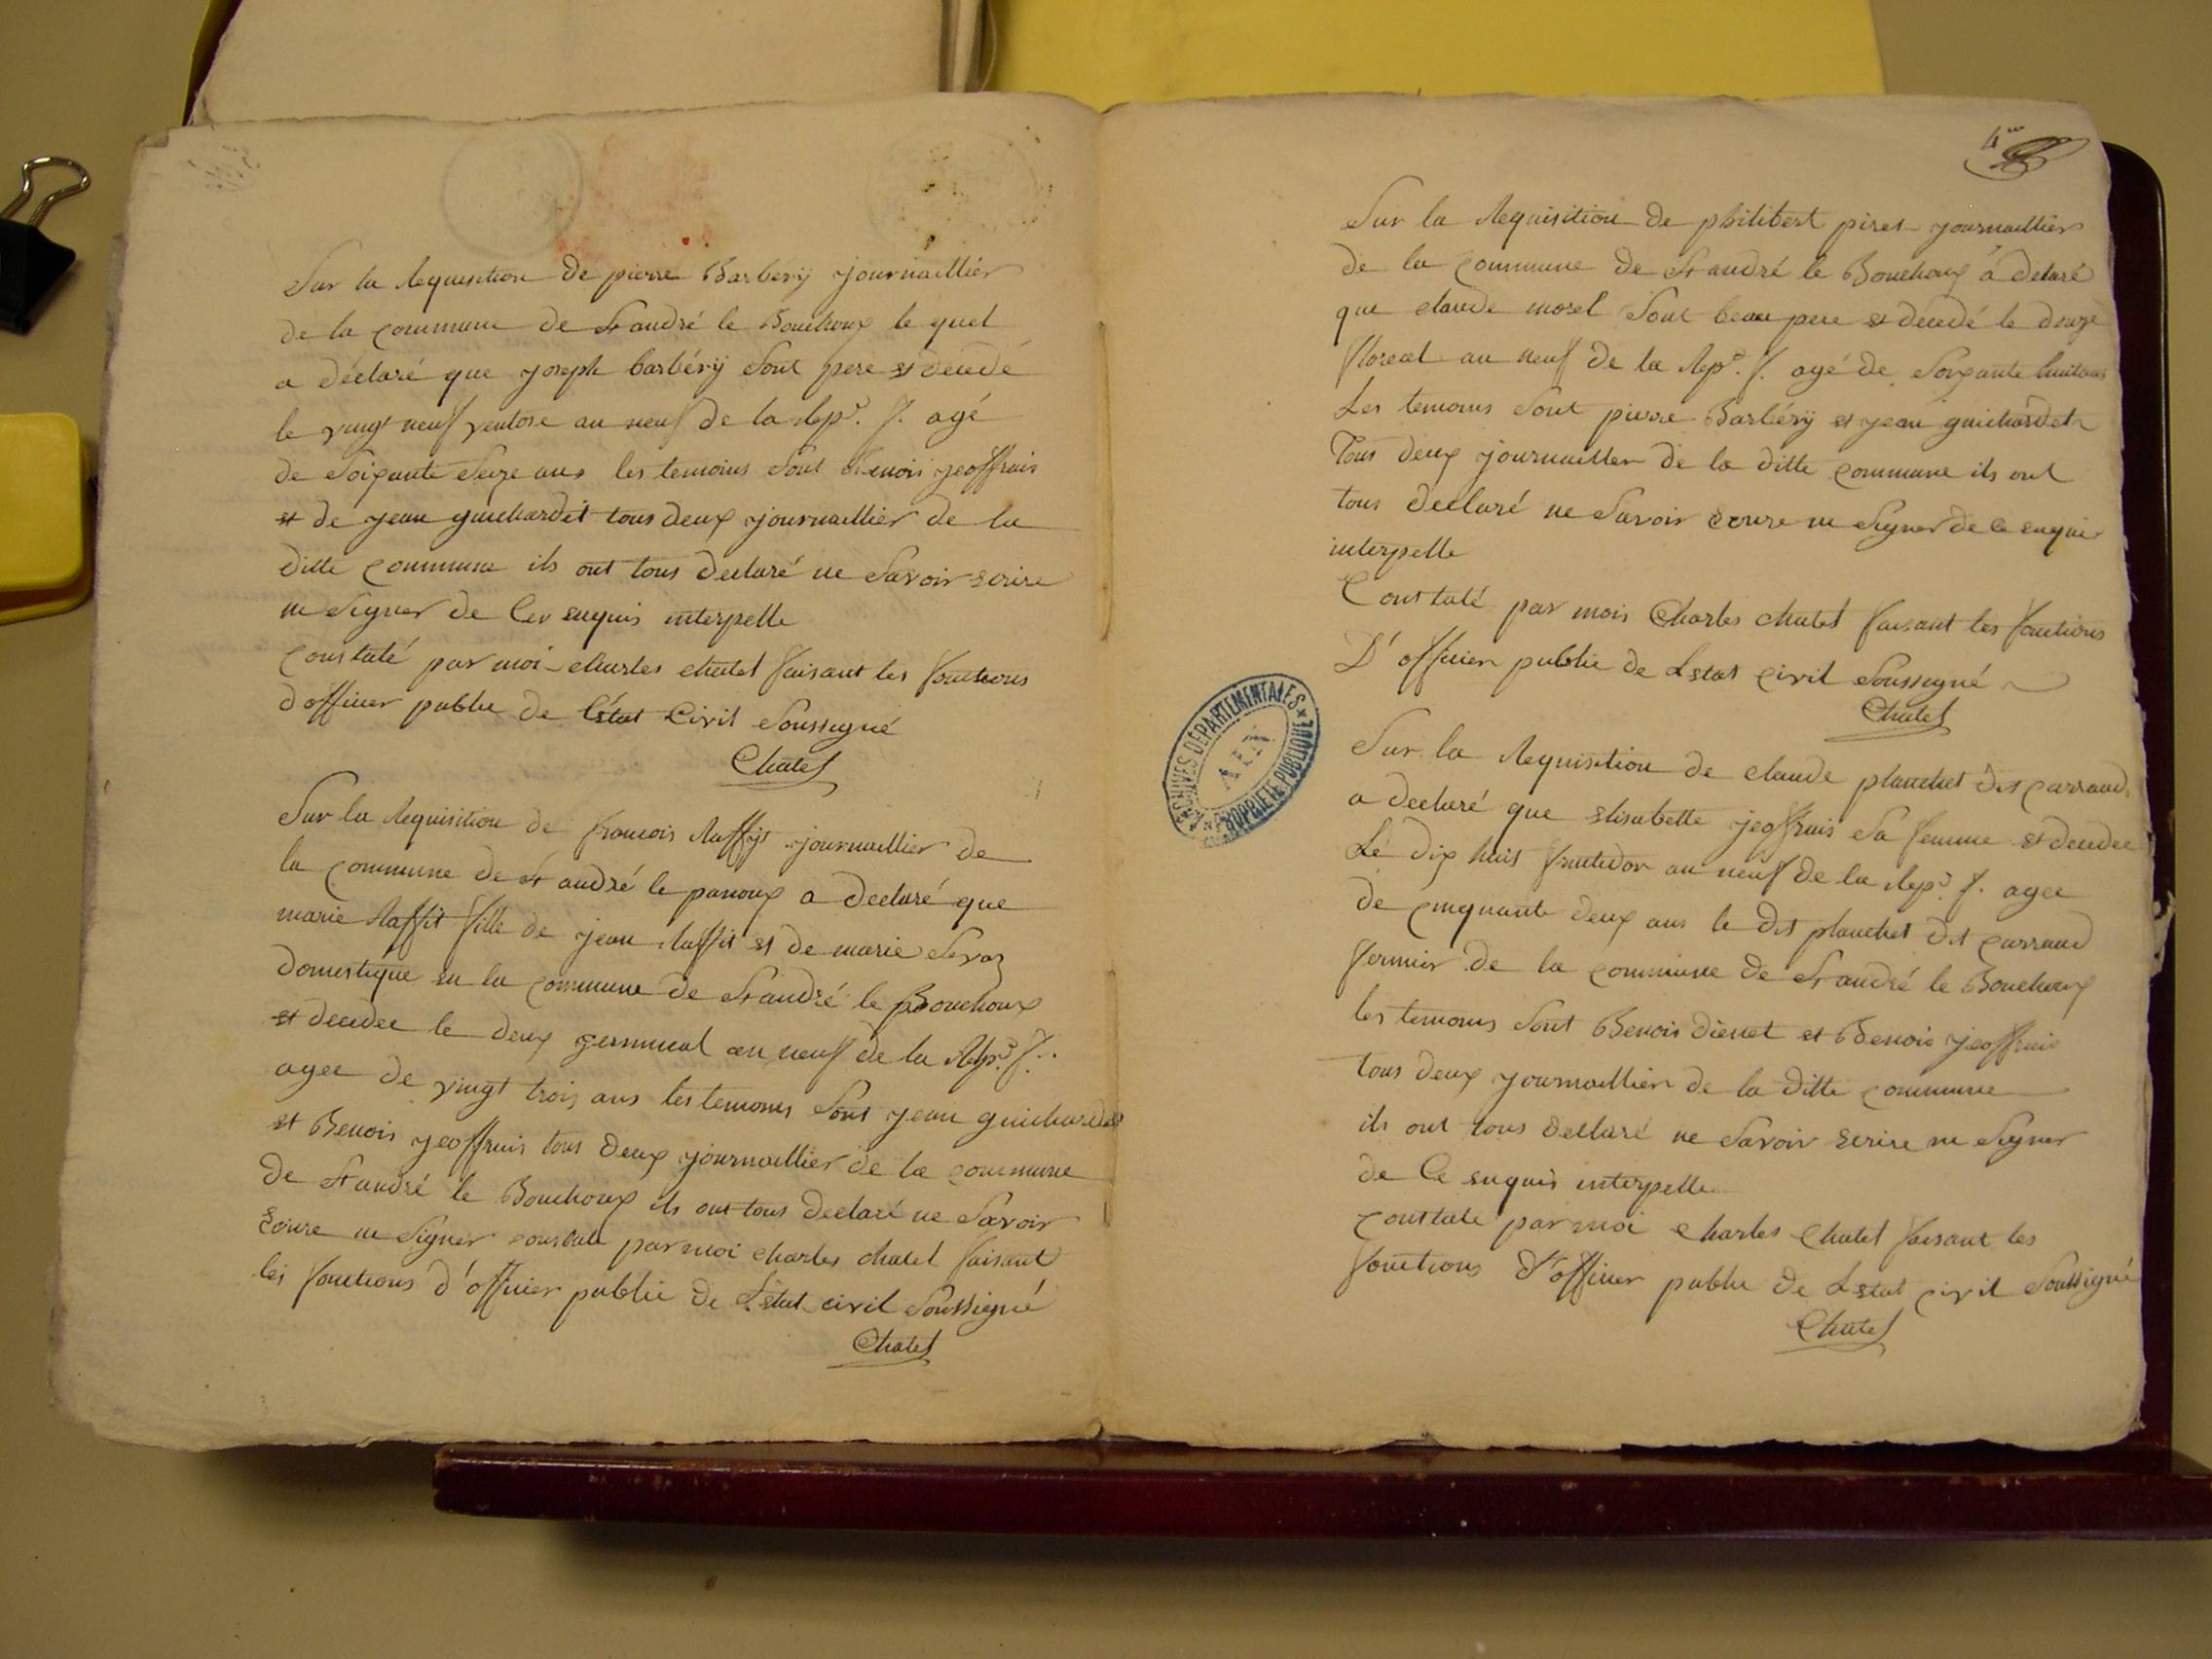 Sur la Requisition de pierre Barberÿ journaillier
de la commune de St andré le Bouchoux le quel
a déclaré que joseph barbérÿ Sont pere et décédé
le vingt neuf ventose an neuf de la Rep.e f. agé
de Soixante Seize ans les temoins Sont Benois jeoffrais
et de jean guichardet tous deux journaillier de la
ditte commune ils ont tous declaré ne Savoir ecrire
ni Signer de Ce enquis interpelle
constaté par moi charles chatel faisant les fonctions
d officier public de L'état Civil Soussigné
Chatel
Sur la Requisition de francois Raffÿt journaillier de
la commune de St andré le panoux a declaré que
marie Raffit fille de jean Raffit et de marie
domestique en la commune de St andré le Bouchoux
et decedee le deux germinal an neuf de la Rep.e f.
agee de vingt trois ans les temoins Sont jean guichardet
et Benois jeoffrais tous deux journaillier de la commune
de St andré le Bouchoux ils ont tous declaré ne Savoir
Ecrire ni Signer constaté par moi charles chatel faisant
les fonctions d'officier public de L'etat civil Soussigné
Chatel
4.me
Sur la Requisition de philibert piret journaillier
de la commune de St andré le Bouchoux a declaré
que claude morel Sont beau pere et decedé le douze
floreal an neuf de la Rep.e f. agé de Soixante huit ans
Les temoins Sont pierre Barbérÿ et jean guichardet
Tous deux journaillier de la ditte commune ils ont
tous declaré ne Savoir ecrire ni Signer de ce enquis
interpelle
Constaté par mois Charles chatel faisant les fonctions
D'officier public de Letat civil Soussigné
Chatel
Sur la Requisition de claude planchet dit carraud
a declaré que elisabette jeoffrais Sa femme et decedee
Le dix huit fructidor an neuf de la Rep.e f. agee
de cinquante deux ans le dit planchet dit carraud
fermier de la commune de St andré le Bouchoux
les temoins Sont Benois dienet et Benois jeoffrais
tous deux journaillier de la ditte commune
ils ont tous declaré ne Savoir ecrire ni Signer
de Ce enquis interpelle
constate par moi charles Chatel faisant les
fonctions d'officier public de Letat civil Soussigné
Chatel
ARCHIVES DÉPARTEMENTALES
AIN
PROPRIETE PUBLIQUE